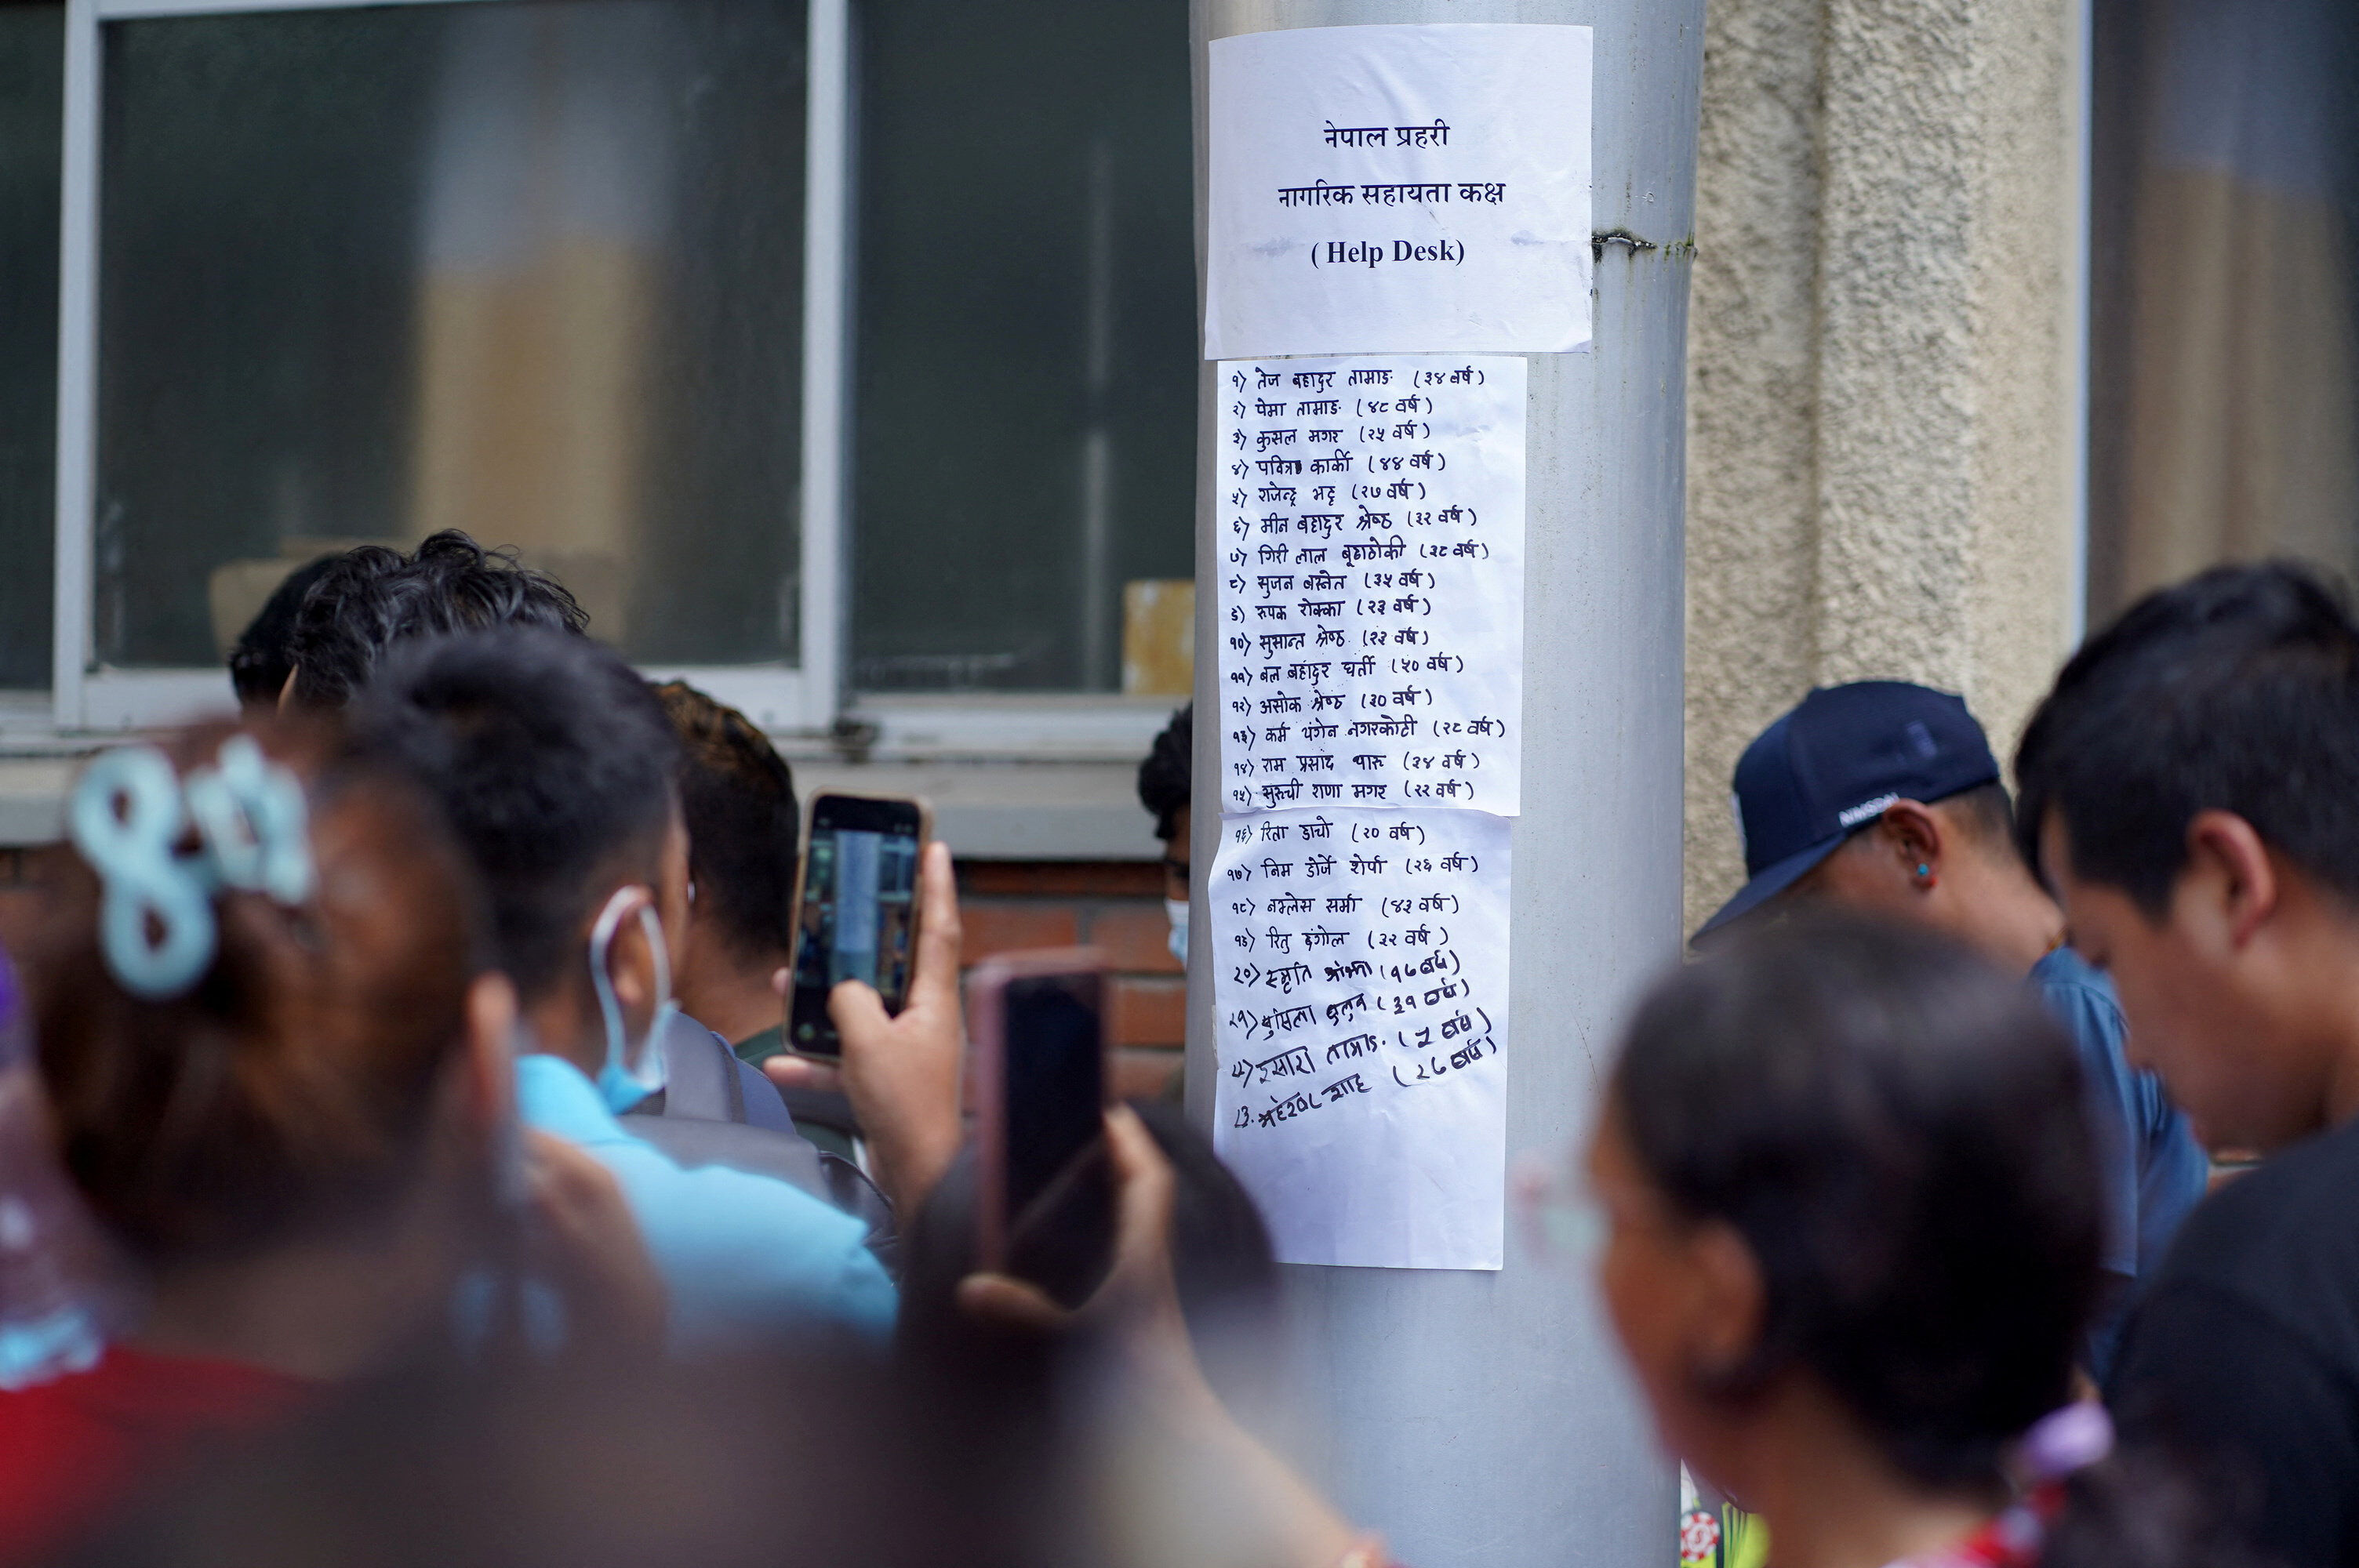 नेपाल प्रहरी
नागरिक सहायता कक्ष
( Help Desk)
१) तेज बहादुर तामाङ (३४ वर्ष)
२) पेमा तामाङ (४८ वर्ष)
३) कुसल मगर (२५ वर्ष)
४) पवित्रा कार्की (४४ वर्ष)
५) राजेन्द्र भट्ट (२७ वर्ष)
६) मीन बहादुर श्रेष्ठ (३२ वर्ष)
७) गिरी लाल बूढाठोकी (३८ वर्ष)
८) सुजन बस्नेत (३५ वर्ष)
९) रुपक रोक्का (२३ वर्ष)
१०) सुसान्त श्रेष्ठ (२३ वर्ष)
११) बल बहादुर घर्ती (५० वर्ष)
१२) असोक श्रेष्ठ (३० वर्ष)
१३) कर्म नगरकोटी (२८ वर्ष)
१४) राम प्रसाद थारु (३४ वर्ष)
१५) सुरुची राणा मगर (२२ वर्ष)
१६) रिता (२० वर्ष)
१७) निम डोर्जे शेर्पा (२६ वर्ष)
१८) सर्मा (४३ वर्ष)
१९) रितु डंगोल (२२ वर्ष)
२०) स्मृति (१७ वर्ष)
२१) (३१ वर्ष)
तामाङ (वर्ष)
शाह (२७ वर्ष)